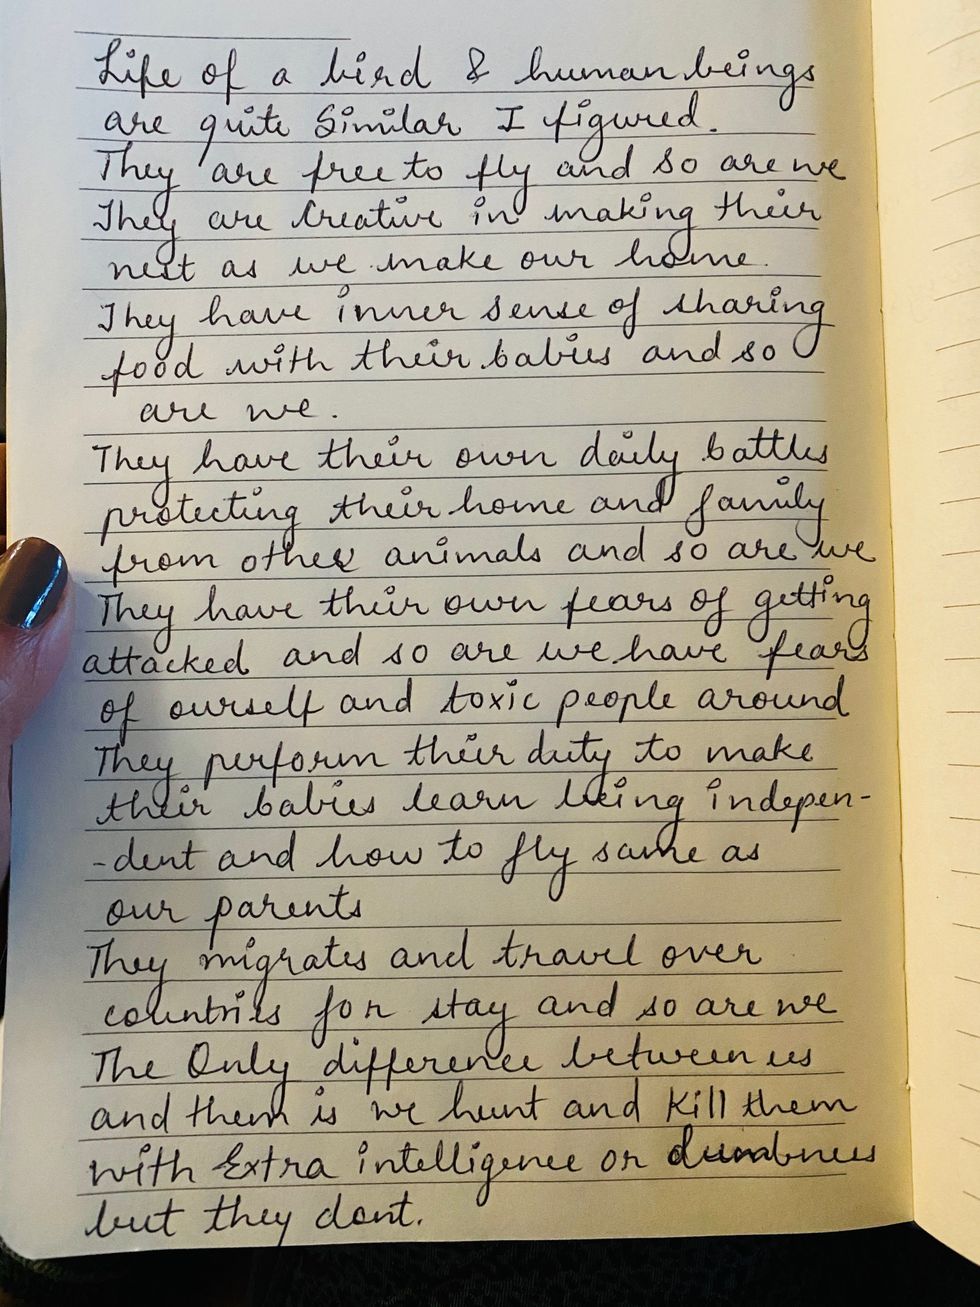 Life of a bird & human beings
are quite Similar I figured.
They are free to fly and so are we
They are Creative in making their
nest as we make our home.
They have inner sense of sharing
food with their babies and so
are we.
They have their own daily battles
protecting their home and family
from other animals and so are we
They have their own fears of getting
attacked and so are we have fears
of ourself and toxic people around
They perform their duty to make
their babies learn being indepen-
-dent and how to fly same as
our parents
They migrates and travel over
countries for stay and so are we
The Only difference between us
and them is we hunt and Kill them
with Extra intelligence or dumbness
but they dont.